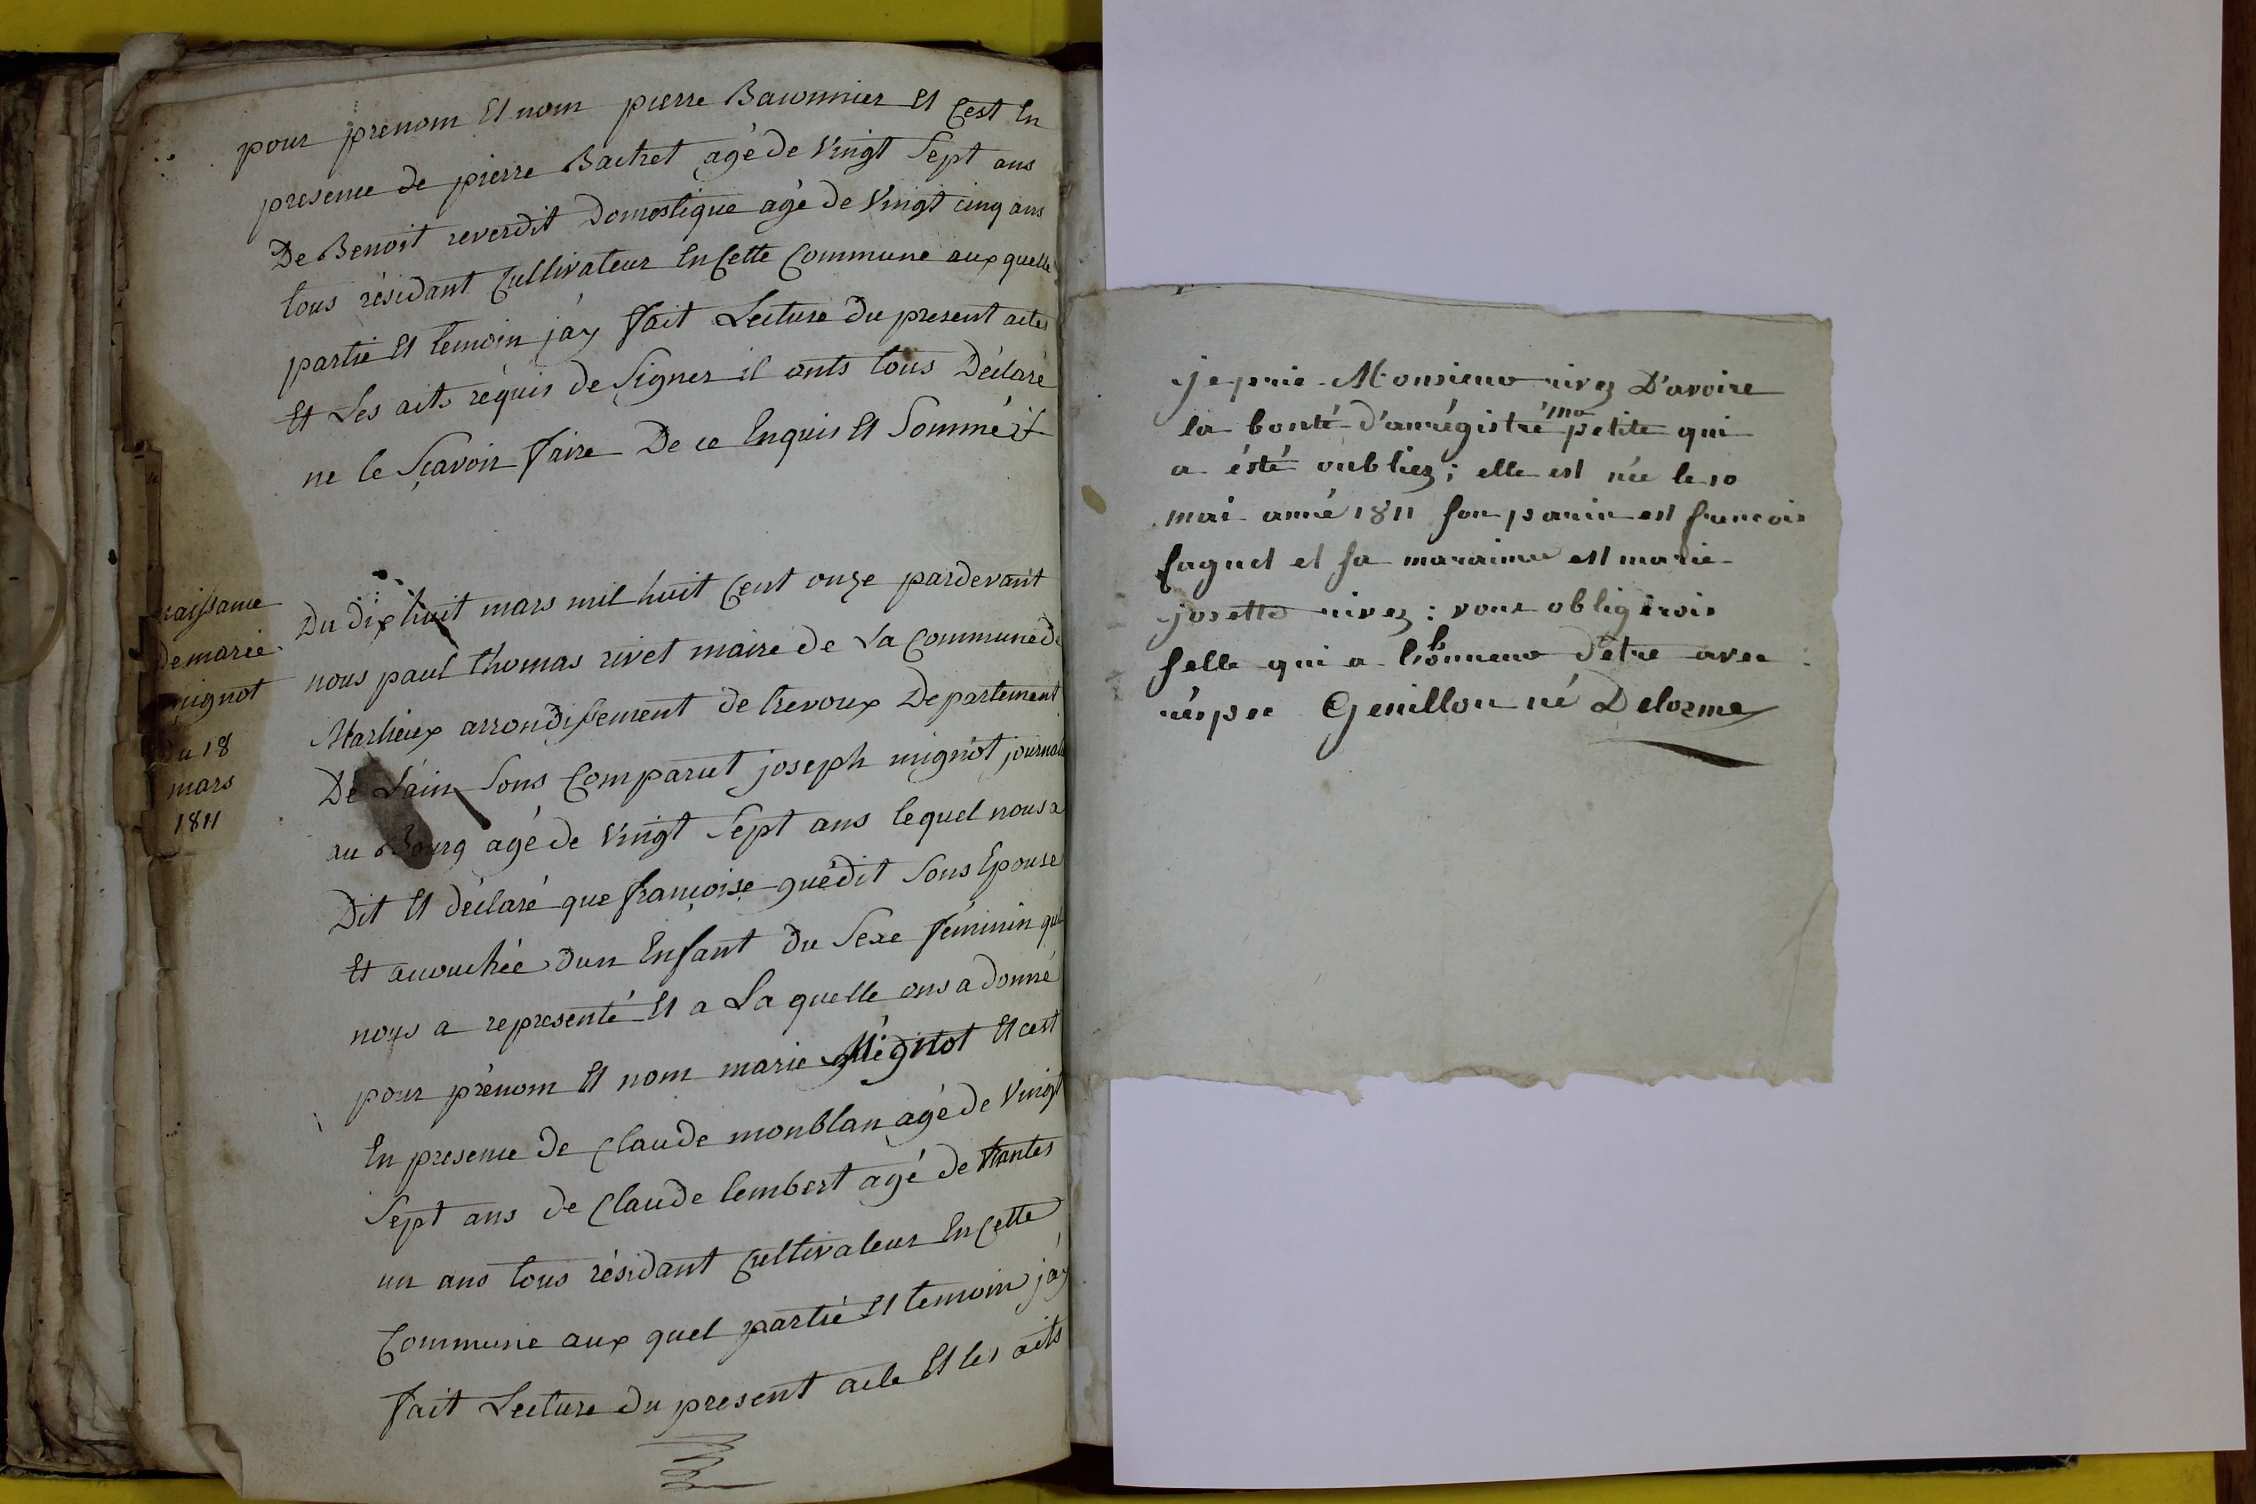 pour prenom Et nom pierre Bawnnier Et Cest En
presence de pierre Bachet agé de Vingt Sept ans
De Benoit reverdit Domestique agé de Vingt cinq ans
tous résidant Cultivateur En Cette Commune aux quelle
partie Et temoin j'ay fait Lecture du present actes
Et Les aits réquis de Signer il onts tous Déclaré
ne le Sçavoir faire De ce Enquis Et Sommé
naissance
de marie
mignot
du 18
mars
1811
Du dix huit mars mil huit Cent onze pardevant
nous paul thomas rivet maire de La Commune de
Marlieux arrondissement de trevoux Departement
De L'ain Sons Comparut joseph mignot journali
au Bourg agé de Vingt Sept ans lequel nous a
Dit Et déclaré que françoise guédit Sons Epouse
Et accouchée dun Enfant du Sexe féminin quil
nous a representé Et a La quelle ons a donné
pour prénom Et nom marie Mignot Et cest
En presence de Claude monblan agé de Vingt
Sept ans de Claude lembert agé de trantes
un ans tous résidant Cultivateur En Cette
Commune aux quel partie Et temoin j'ay
fait Lecture du present acte Et les aits
je prie Monsieur rivez D'avoire
la bonté d'anrégistré ma petite qui
a ésté oubliez; elle est née le 10
mai anné 1811 son parin est francois
faguet et sa maraine est marie
josette rivez : vous obligerois
selle qui a l'honneur d'etre avec
réspec Genillon né Delorme